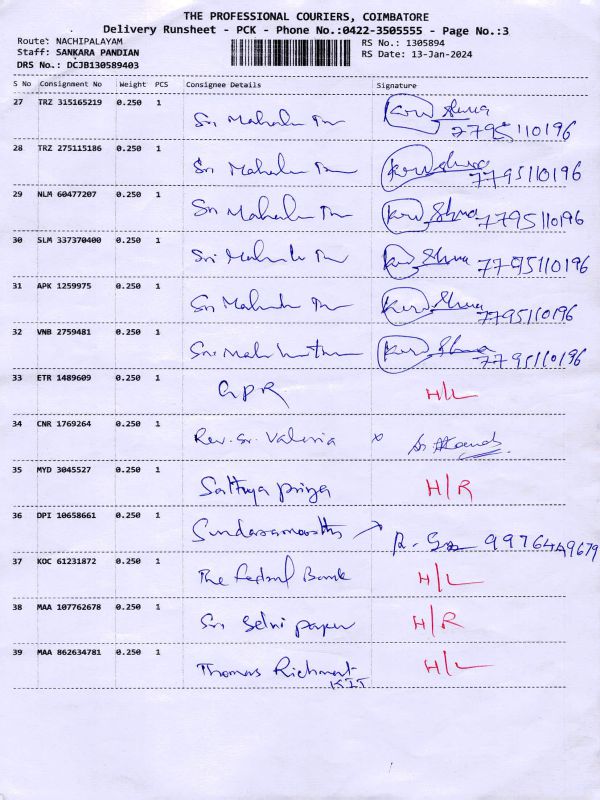 THE PROFESSIONAL COURIERS, COIMBATORE
Delivery Runsheet - PCK - Phone No.:0422-3505555 - Page No.:3
Route: NACHIPALAYAM
RS No.: 1305894
Staff: SANKARA PANDIAN
RS Date: 13-Jan-2024
DRS No.: DCJB130589403
S No Consignment No Weight PCS Consignee Details Signature
27 TRZ 315165219 0.250 1
Sri 7795110196
28 TRZ 275115186 0.250 1
Sri 7795110196
29 NLM 60477207 0.250 1
Sri 7795110196
30 SLM 337370400 0.250 1
Sri 7795110196
31 APK 1259975 0.250 1
Sri 7795110196
32 VNB 2759481 0.250 1
Sri 7795110196
33 ETR 1489609 0.250 1
GPR H/L
34 CNR 1769264 0.250 1
Rev. Sr. Valeria x
35 MYD 3045527 0.250 1
Sathya priya H/R
36 DPI 10658661 0.250 1
Sundaramoorthy
37 KOC 61231872 0.250 1
The Federal Bank H/L
38 MAA 107762678 0.250 1
Sri Selvi paper H/R
39 MAA 862634781 0.250 1
Thomas Richment H/L
KIT